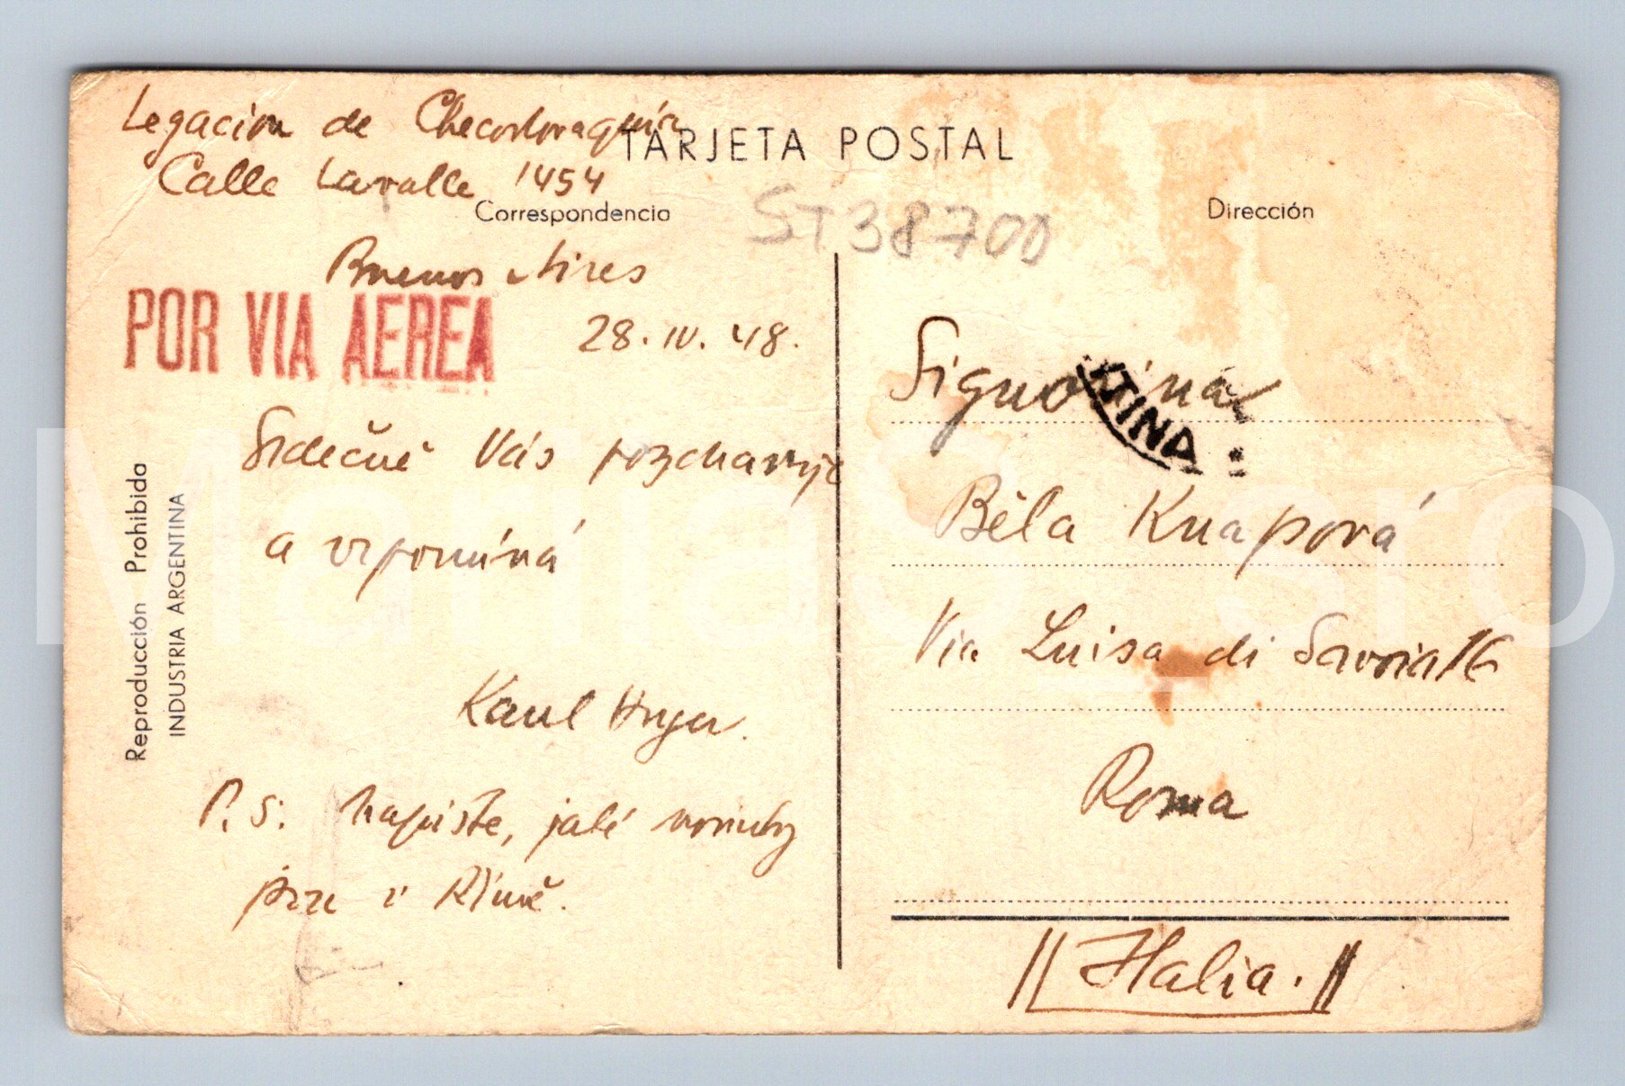 Legacion de Checoslovaquia
TARJETA POSTAL
Calle Lavalle 1454
Correspondencia
Dirección
ST38700
Buenos Aires
POR VIA AEREA
28. IV. 48.
Srdečně Vás pozdravuje
a vzpomíná
Karel
P. S. Napište, jaké
v Římě.
Reproducción Prohibida
INDUSTRIA ARGENTINA
Signorina
TINA
Běla Knapová
Via Luisa di Savoia 16
Roma
Italia.